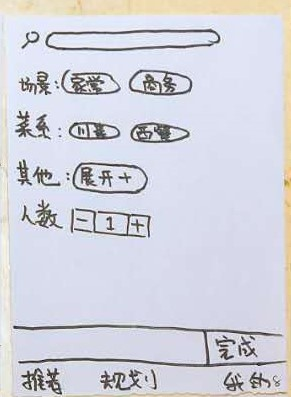 场景: 家常 商务
菜系: 川菜 西餐
其他: 展开+
人数 - 1 +
完成
推荐 规划 我的